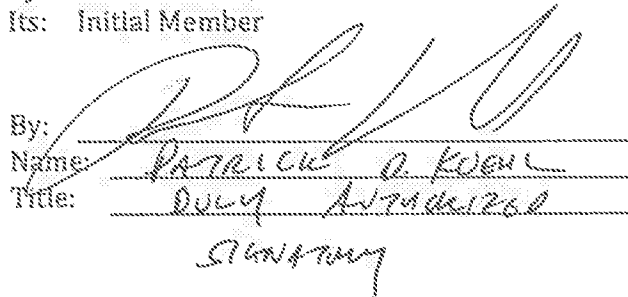 Its: Initial Member
By:
Name: PATRICK D. KUEHL
Title: DULY AUTHORIZED
SIGNATORY